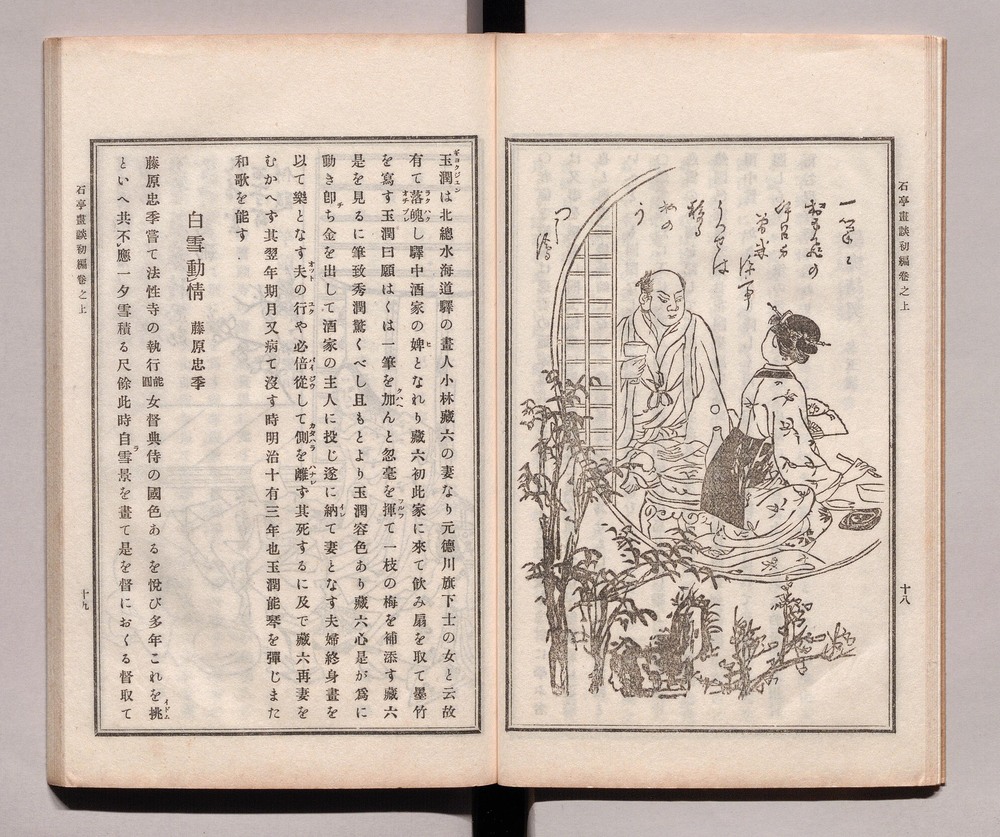 石亭畫談初編卷之上
十八
玉潤は北總水海道驛の畫人小林藏六の妻なり元德川旗下士の女と云故
有て落魄し驛中酒家の婢となれり藏六初此家に來て飲み扇を取て墨竹
を寫す玉潤曰願はくは一筆を加んと忽毫を揮て一枝の梅を補添す藏六
是を見るに筆致秀潤驚くべし且もとより玉潤容色あり藏六心是が爲に
動き卽ち金を出して酒家の主人に投じ遂に納て妻となす夫婦終身畫を
以て樂となす夫の行や必倍從して側を離ず其死するに及で藏六再妻を
むかへず其翌年期月又病て沒す時明治十有三年也玉潤能琴を彈じまた
和歌を能す
白雪動情　藤原忠季
藤原忠季嘗て法性寺の執行能圓女督典侍の國色あるを悅び多年これを挑
といへ共不應一夕雪積る尺餘此時自雪景を畫て是を督におくる督取て
石亭畫談初編卷之上
十九